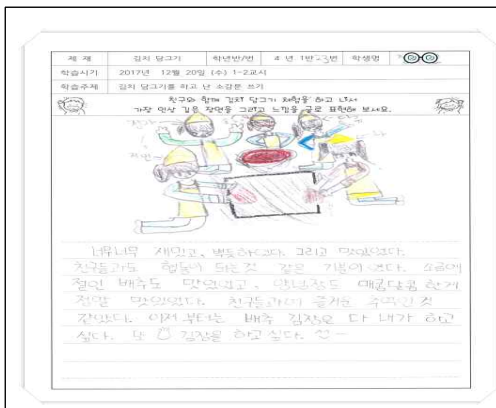 제 재 김치 담그기 학년반/번 4 년 1반-3번 학생명
학습시기 2017년 12월 20일 (수) 1-2교시
학습주제 김치 담그기를 하고 난 소감문 쓰기
친구와 함께 김치 담그기 체험을 하고 나서
가장 인상 깊은 장면을 그리고 느낌을 글로 표현해 보세요.
너무너무 재밌고, 뿌듯하였다. 그리고 맛있었다.
친구들과도 협동이 되는 것 같은 기분이었다. 소금에
절인 배추도 맛있었고, 양념장도 매콤달콤 한게
정말 맛있었다. 친구들과의 즐거운 추억인 것
같았다. 이제부터는 배추 김장은 다 내가 하고
싶다. 또 김장을 하고 싶다.